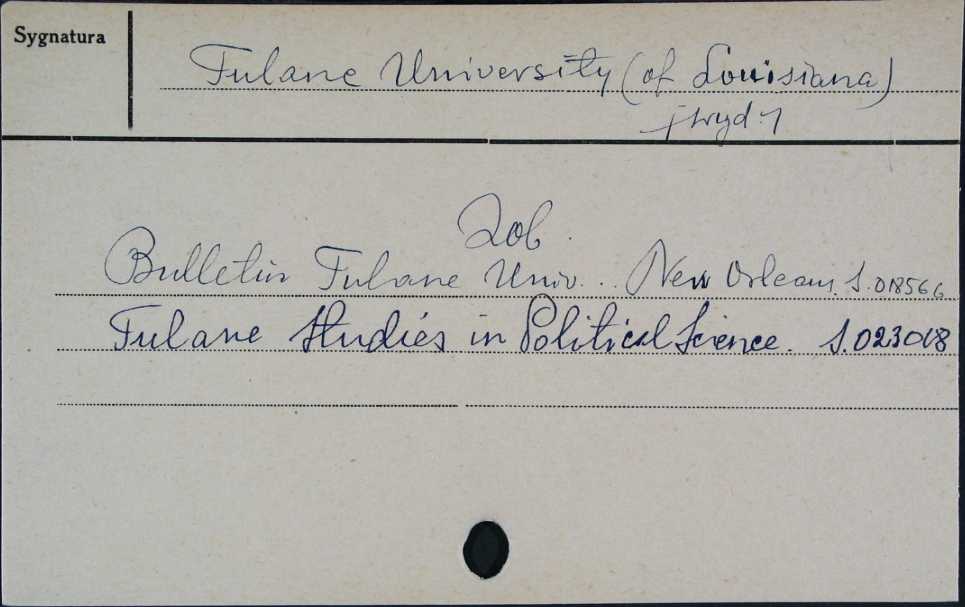 Sygnatura
Tulane University (of Louisiana)
[wyd.]
Zob.
Bulletin Tulane Univ. .. New Orleans. S.018566
Tulane Studies in Political Science. S.023018